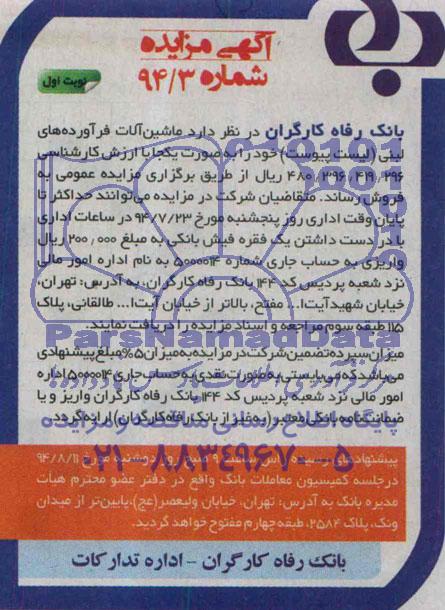 آگهی مزایده
شماره ۹۴/۳
نوبت اول
بانک رفاه کارگران در نظر دارد ماشین‌آلات فرآورده‌های
لبنی (لیست پیوست) خود را به صورت یکجا با ارزش کارشناسی
۴۸۰/۳۹۶/۴۱۹/۲۹۶ ریال از طریق برگزاری مزایده عمومی به
فروش رساند. متقاضیان شرکت در مزایده می‌توانند حداکثر تا
پایان وقت اداری روز پنجشنبه مورخ ۹۴/۷/۲۳ در ساعات اداری
با در دست داشتن یک فقره فیش بانکی به مبلغ ۲۰۰٫۰۰۰ ریال
واریزی به حساب جاری شماره ۵۰۰۰۰۱۴ به نام اداره امور مالی
نزد شعبه پردیس کد ۱۴۴ بانک رفاه کارگران، به آدرس: تهران،
خیابان شهید آیت‌ا... مفتح، بالاتر از خیابان آیت‌ا... طالقانی، پلاک
۱۱۵ طبقه سوم مراجعه و اسناد مزایده را دریافت نمایند.
میزان سپرده تضمین شرکت در مزایده به میزان ۵% مبلغ پیشنهادی
می‌باشد که می‌بایستی به صورت نقدی به حساب جاری ۵۰۰۰۰۱۴ اداره
امور مالی نزد شعبه پردیس کد ۱۴۴ بانک رفاه کارگران واریز و یا
ضمانتنامه بانکی معتبر (به غیر از بانک رفاه کارگران) ارائه گردد.
پیشنهاد دوشنبه مورخ ۹۴/۸/۱۱
در جلسه کمیسیون معاملات بانک واقع در دفتر عضو محترم هیأت
مدیره بانک به آدرس: تهران، خیابان ولیعصر(عج)، پایین‌تر از میدان
ونک، پلاک ۲۵۸۴، طبقه چهارم مفتوح خواهد گردید.
بانک رفاه کارگران - اداره تدارکات
ParsNamadData
۰۲۱-۸۸۳۴۹۶۷۰-۵